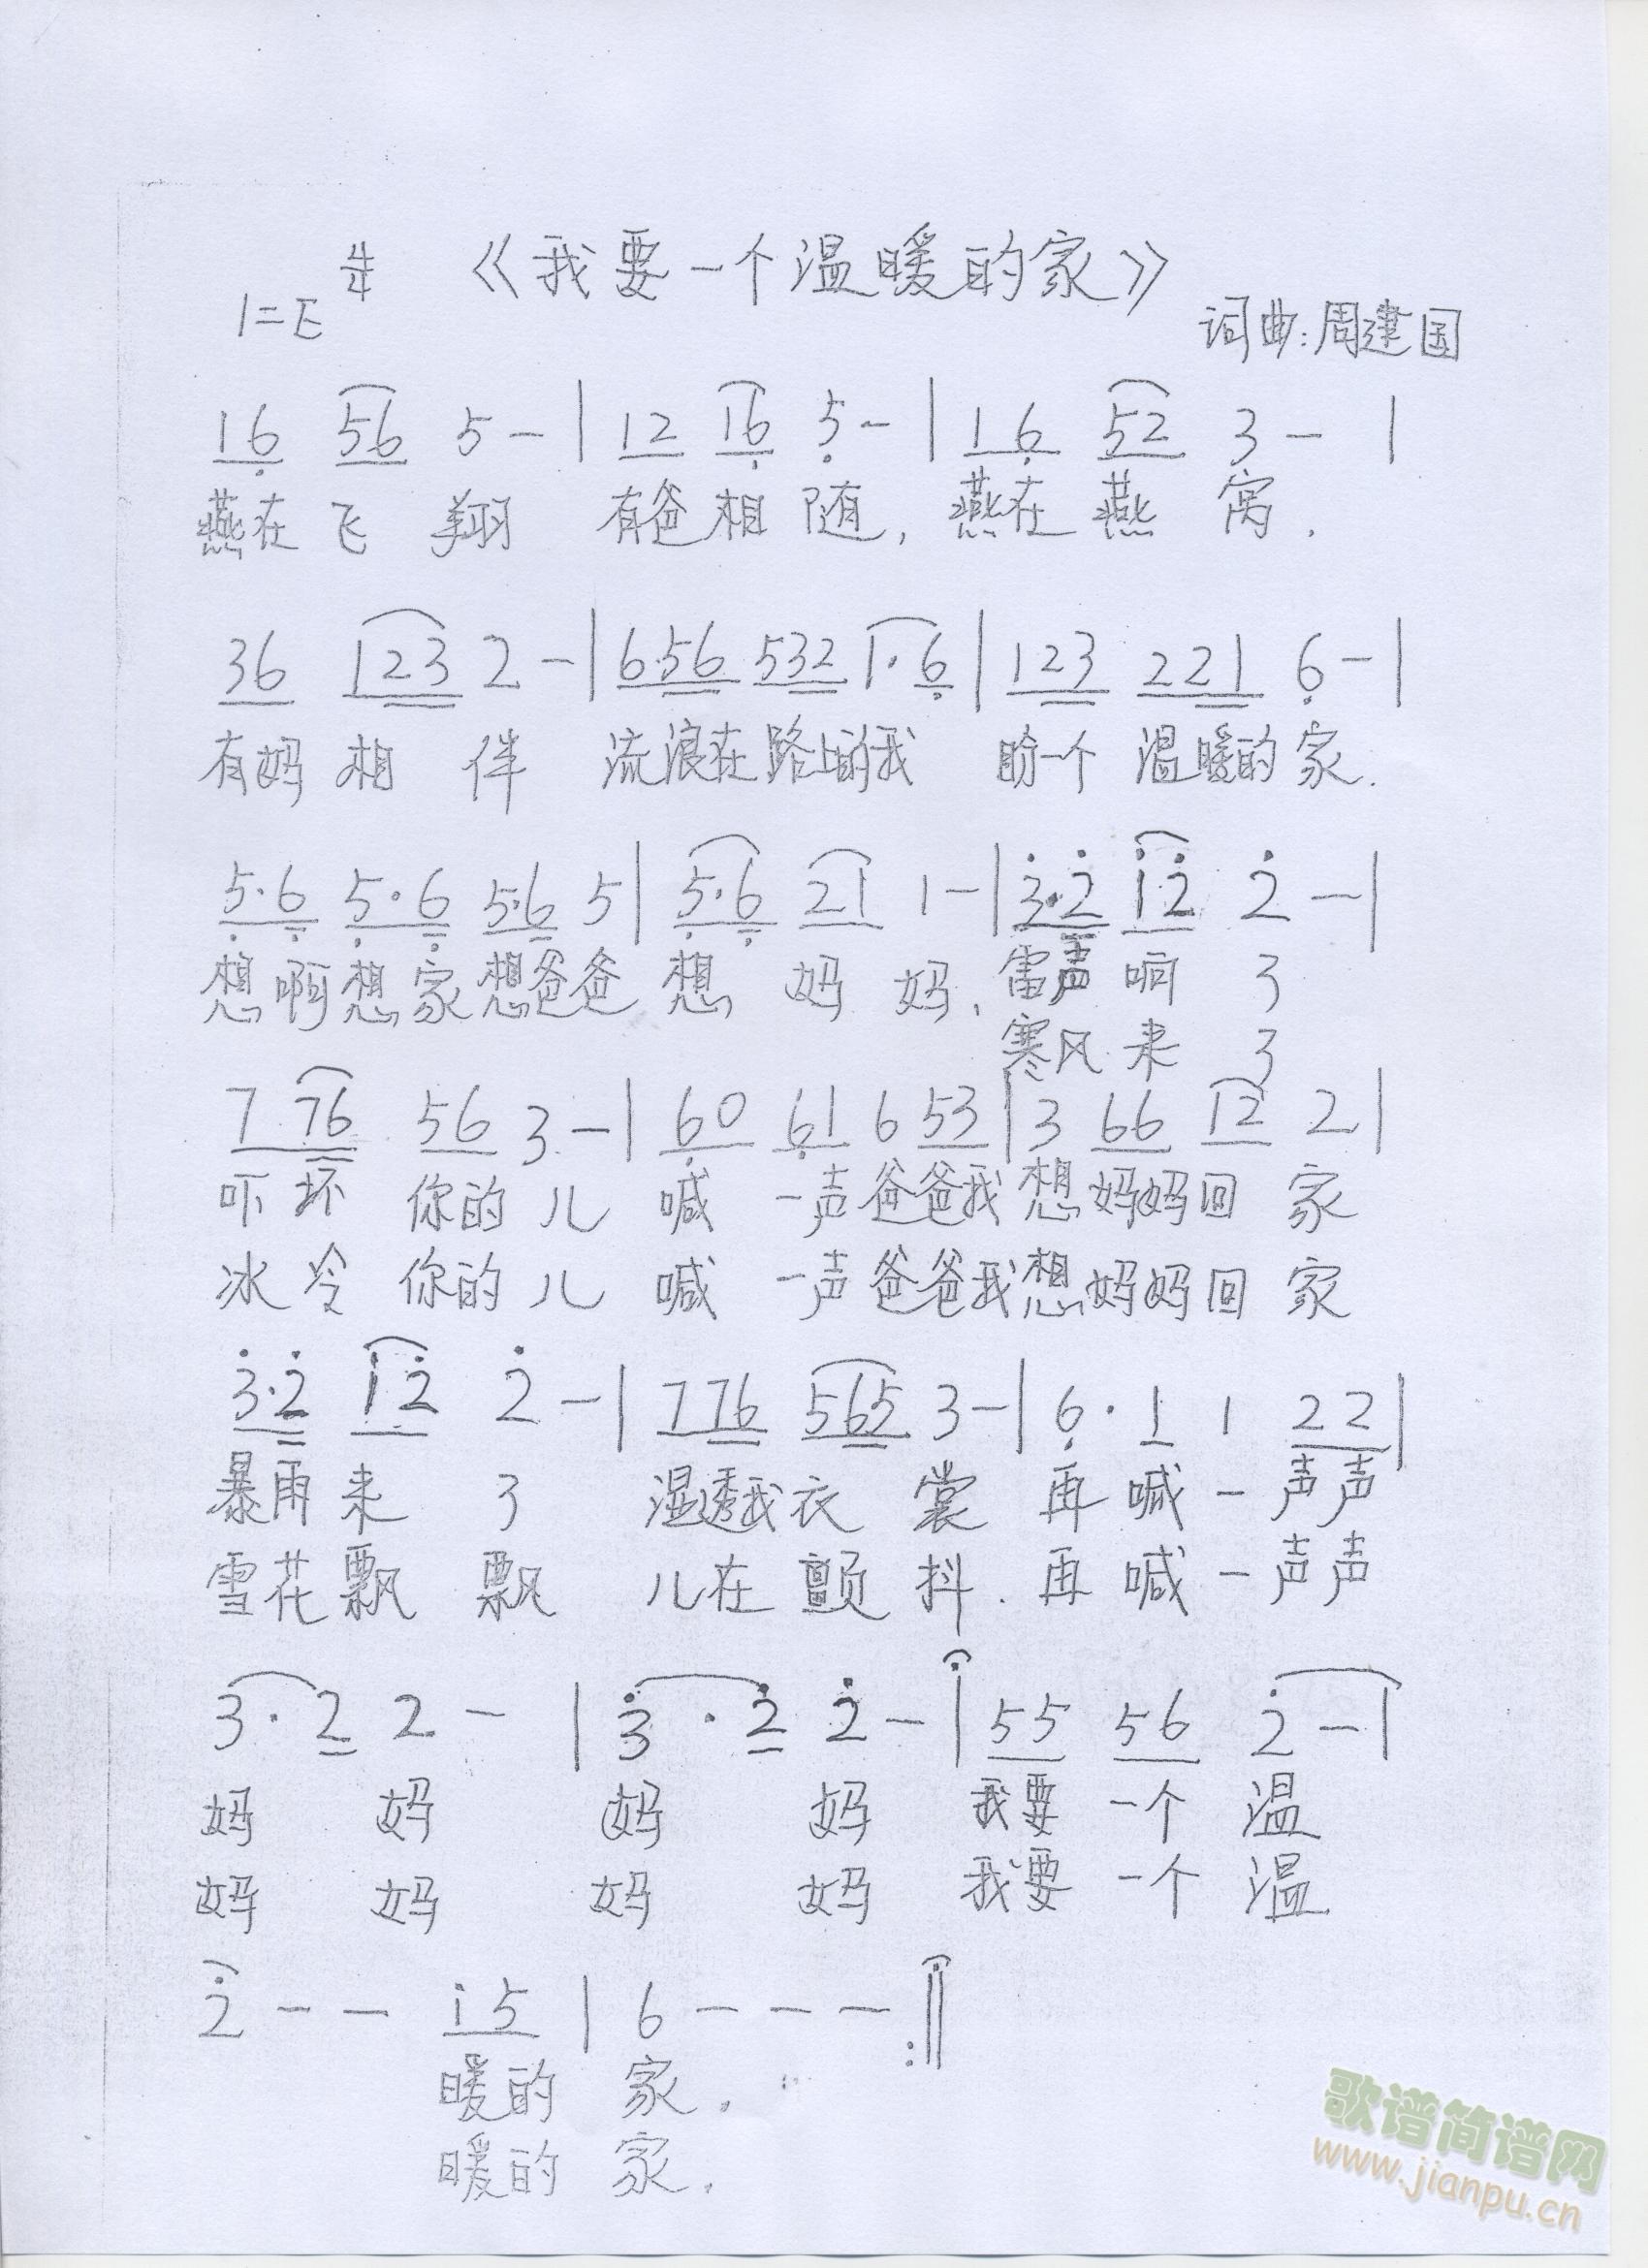 《我要一个温暖的家》
1=E 4/4
词曲:周建国
16 56 5 - | 12 16 5 - | 16 52 3 - |
燕在飞翔 有爸相随, 燕在燕窝.
36 123 2 - | 6·56 532 1·6 | 123 221 6 - |
有妈相伴 流浪在路上的我 盼一个温暖的家.
5·6 5·6 5·6 5 | 5·6 21 1 - | 3·2 12 2 - |
想啊想家想爸爸 想妈妈. 雷声响了
寒风来了
7 76 56 3 - | 60 61 6 53 | 3 66 12 2 |
吓坏你的儿 喊一声爸爸我想妈妈回家
冰冷你的儿 喊一声爸爸我想妈妈回家
3·2 12 2 - | 776 565 3 - | 6·1 1 22 |
暴雨来了 湿透我衣裳 再喊一声声
雪花飘飘 儿在颤抖. 再喊一声声
3·2 2 - | 3·2 2 - | 55 56 2 - |
妈妈 妈妈 我要一个温
妈妈 妈妈 我要一个温
2 - - 15 | 6 - - - :||
暖的家.
暖的家.
歌谱简谱网
www.jianpu.cn